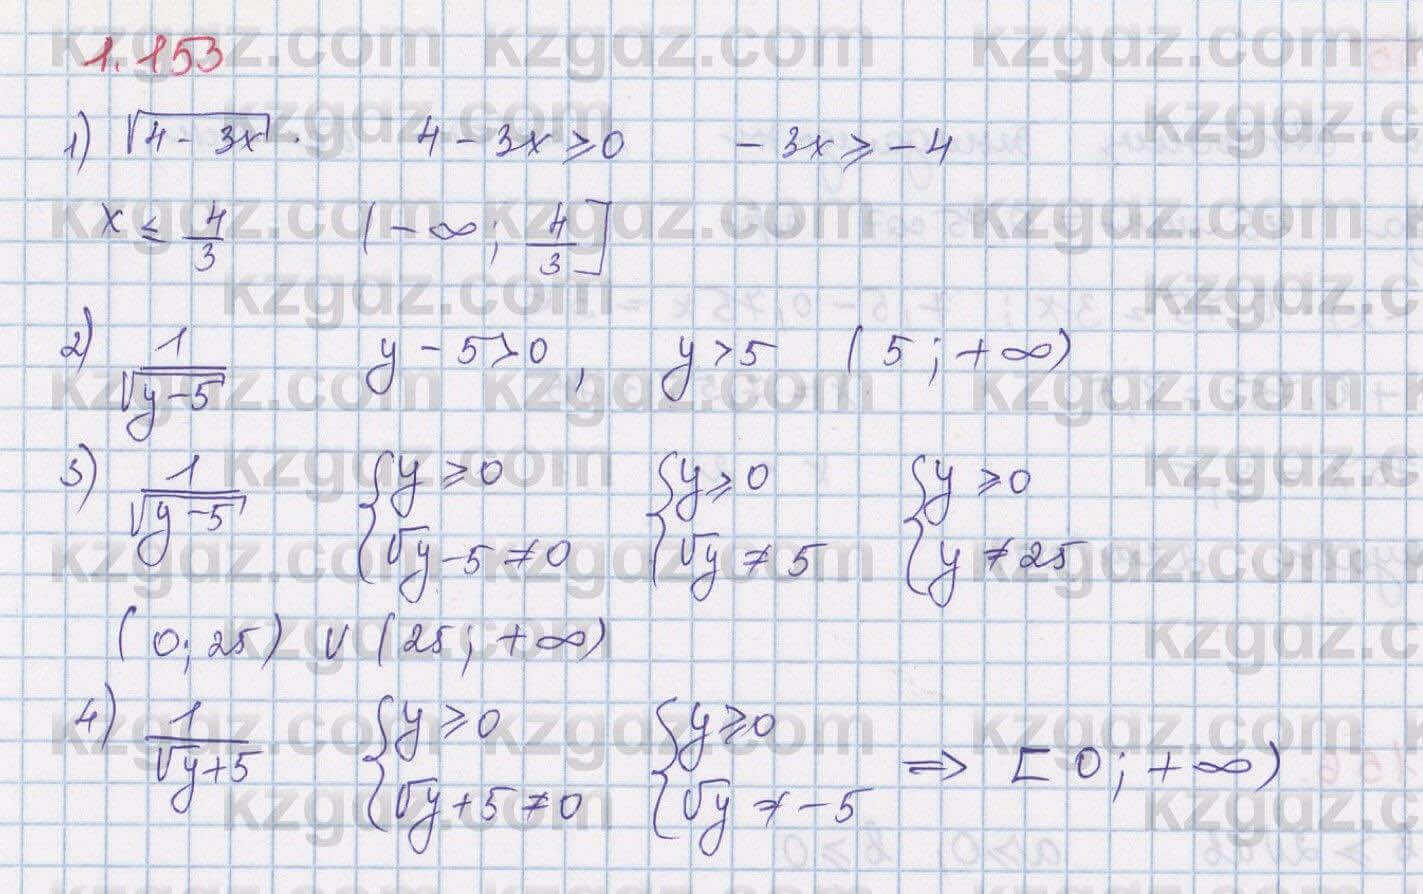 1.153
1) √(4 - 3x). 4 - 3x ⩾ 0 - 3x ⩾ - 4
x ≤ 4/3 (- ∞; 4/3]
2) 1/√(y-5) y - 5 > 0, y > 5 (5; +∞)
3) 1/√(y-5) {y ⩾ 0 {y ⩾ 0 {y ⩾ 0
{√y - 5 ≠ 0 {√y ≠ 5 {y ≠ 25
(0; 25) ∪ (25; +∞)
4) 1/(√y+5) {y ⩾ 0 {y ⩾ 0 ⇒ [0; +∞)
{√y + 5 ≠ 0 {√y ≠ - 5
kzgdz.com